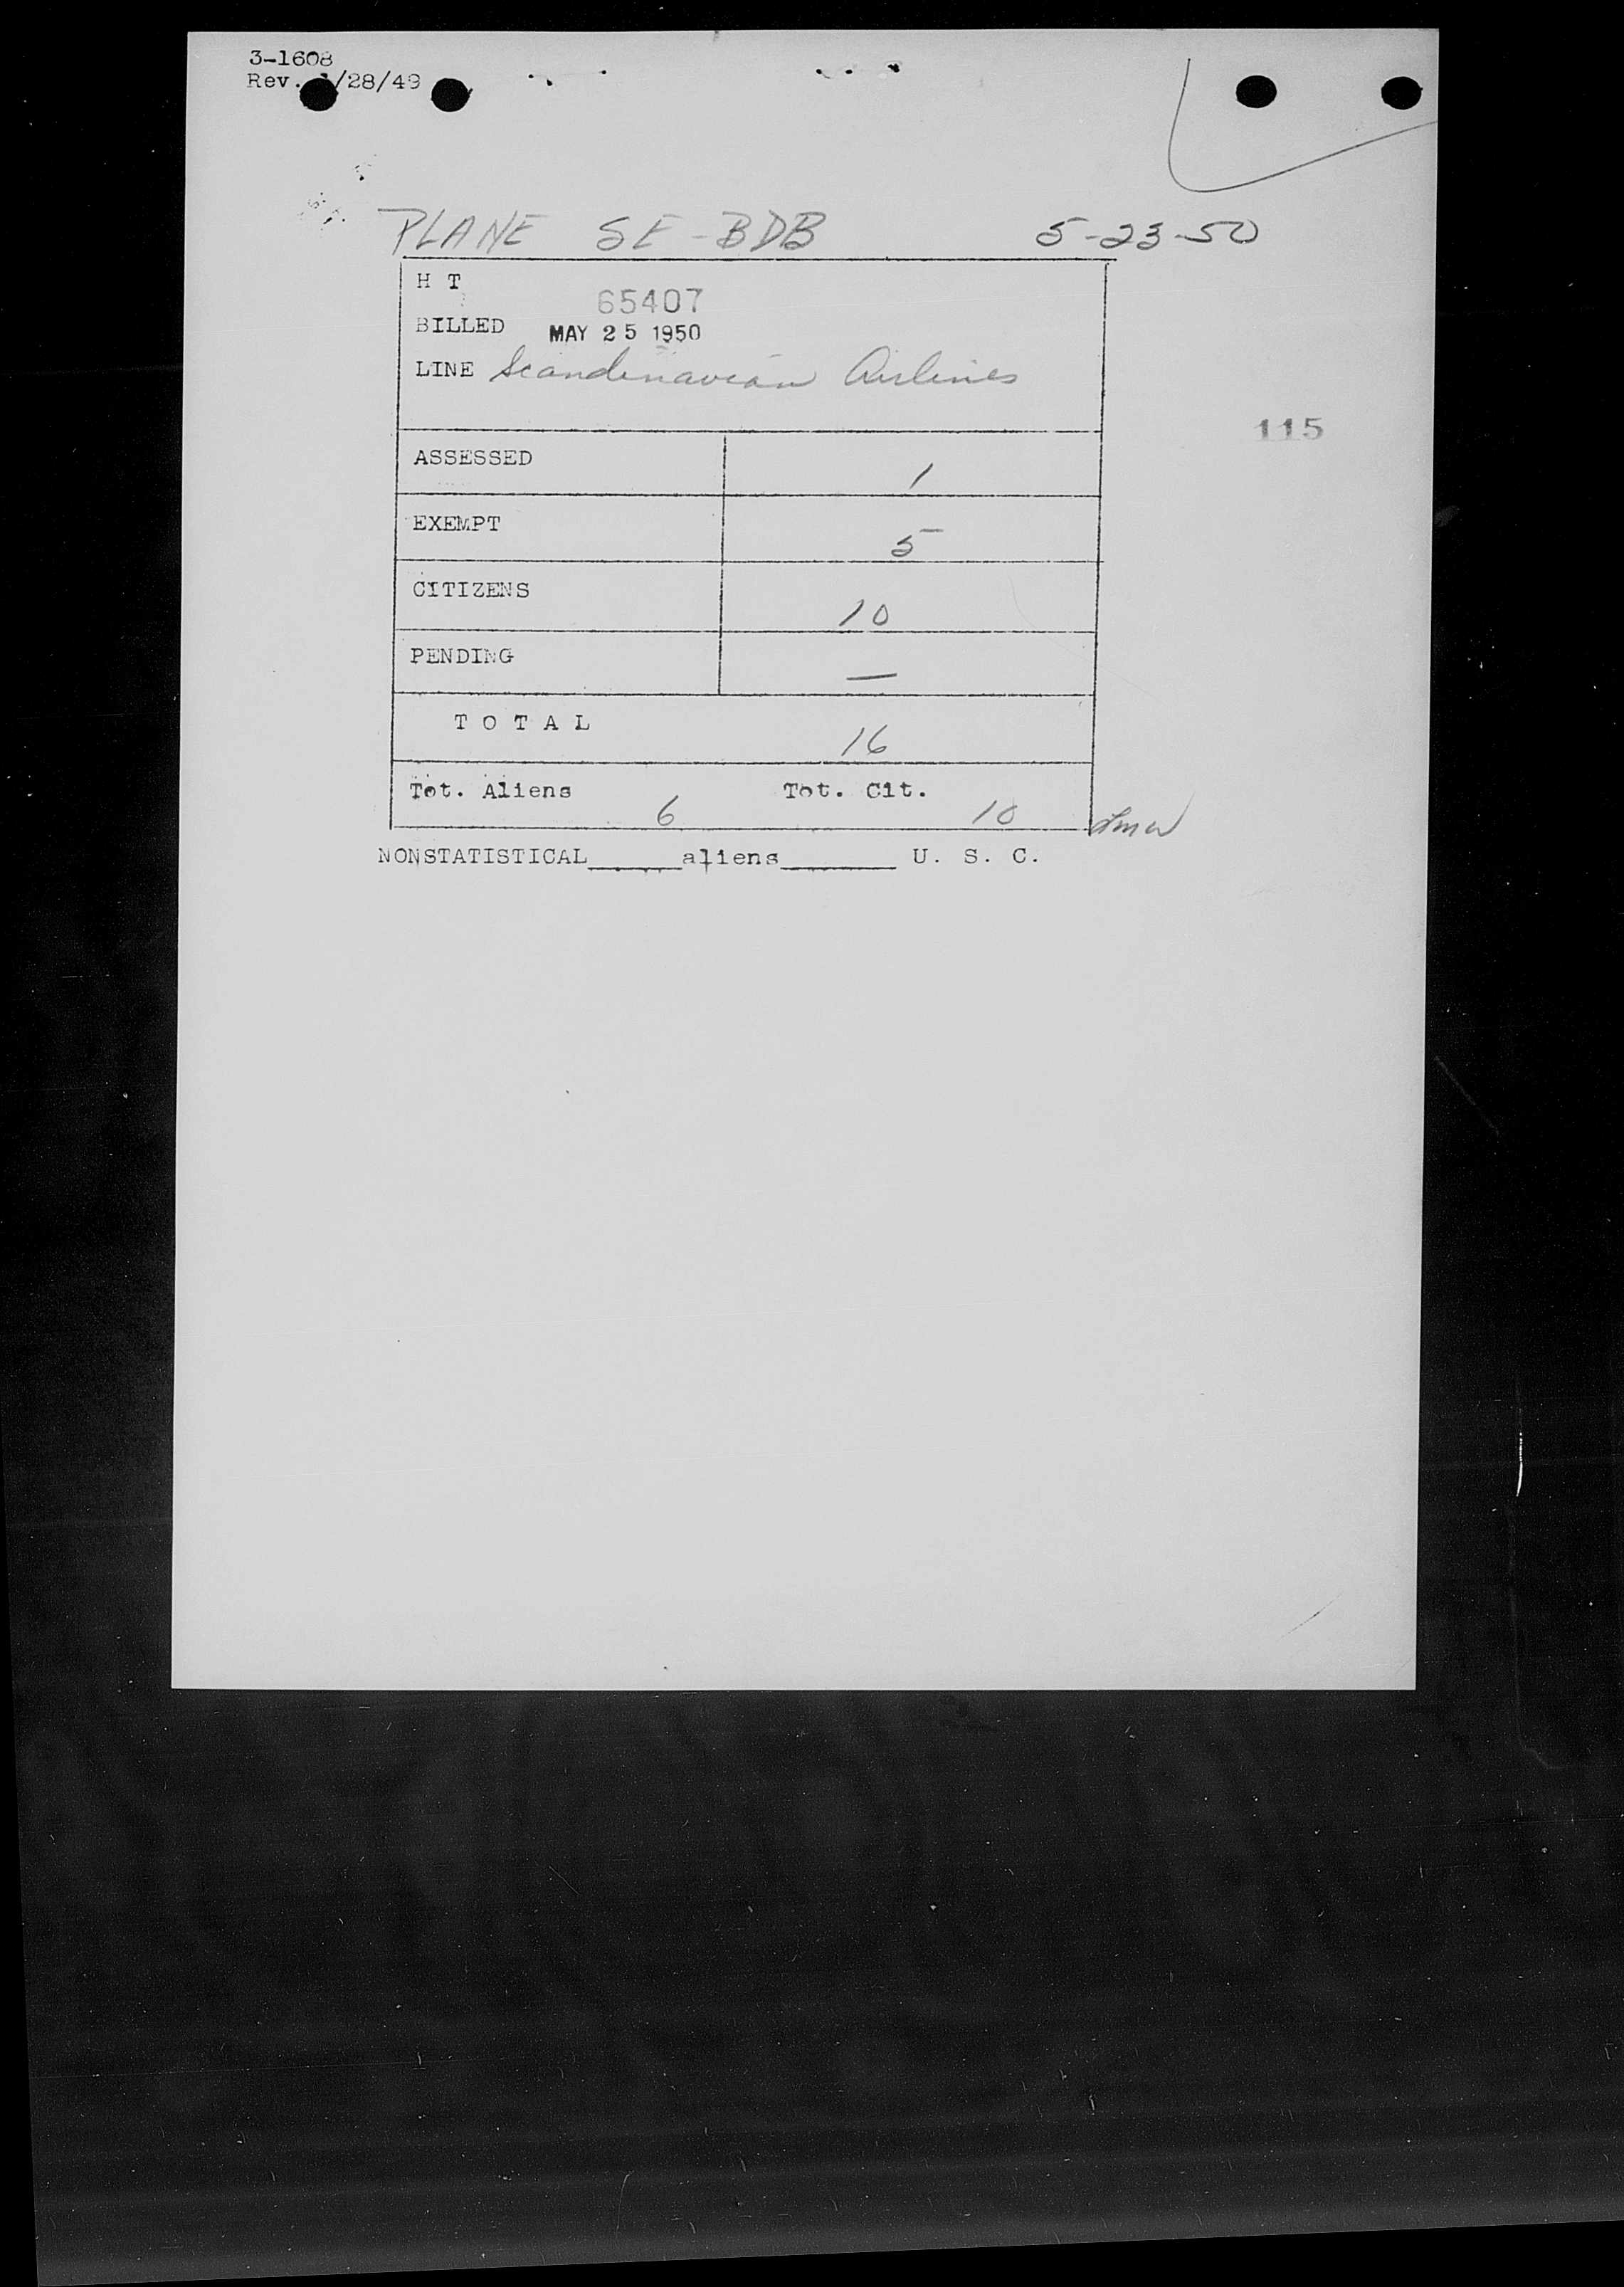 3-1608
Rev. /28/49
PLANE SE-BDB 5-23-50
H T
65407
BILLED MAY 25 1950
LINE Scandinavian Airlines
115
ASSESSED 1
EXEMPT 5
CITIZENS 10
PENDING —
T O T A L 16
Tot. Aliens 6 Tot. Cit. 10
NONSTATISTICAL______aliens________ U. S. C.